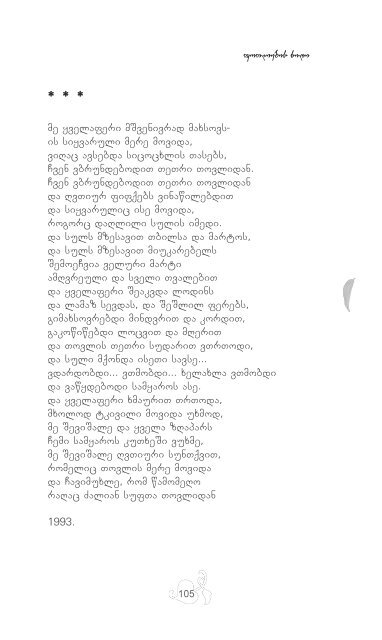 * * *
მე ყველაფერი მშვენივრად მახსოვს-
ის სიყვარული მერე მოვიდა,
ვიღაც ავსებდა სიცოცხლის თასებს,
ჩვენ ვბრუნდებოდით თეთრი თოვლიდან.
ჩვენ ვბრუნდებოდით თეთრი თოვლიდან
და ღვთიურ ფიფქებს ვინაწილებდით
და სიყვარულიც ისე მოვიდა,
როგორც დაღლილი სულის იმედი.
და სულს მზესავით თბილსა და მარტოს,
და სულს მზესავით მიუკარებელს
შემოეჩვია ველური მარტი
ამღვრეული და სველი თვალებით
და ყველაფერი შეაკვდა ლოდინს
და ლამაზ სევდას, და შეშლილ ფერებს,
გიმახსოვრებდი მინდვრით და კორდით,
გაკოწიწებდი ლოცვით და მღერით
და თოვლის თეთრი სუდარით ვთრთოდი,
და სული მქონდა ისეთი სავსე...
ვდარდობდი... ვთმობდი... ხელახლა ვთმობდი
და ვაწყდებოდი სამყაროს ასე.
და ყველაფერი ხმაურით თრთოდა,
მხოლოდ ტკივილი მოვიდა უხმოდ,
მე შევიშალე და ყველა ზღაპარს
ჩემი სამყაროს კუთხეში ვუხმე,
მე შევიშალე ღვთიური სუნთქვით,
რომელიც თოვლის მერე მოვიდა
და ჩავიმუხლე, რომ წამომეღო
რაღაც ძალიან სუფთა თოვლიდან
1993.
105